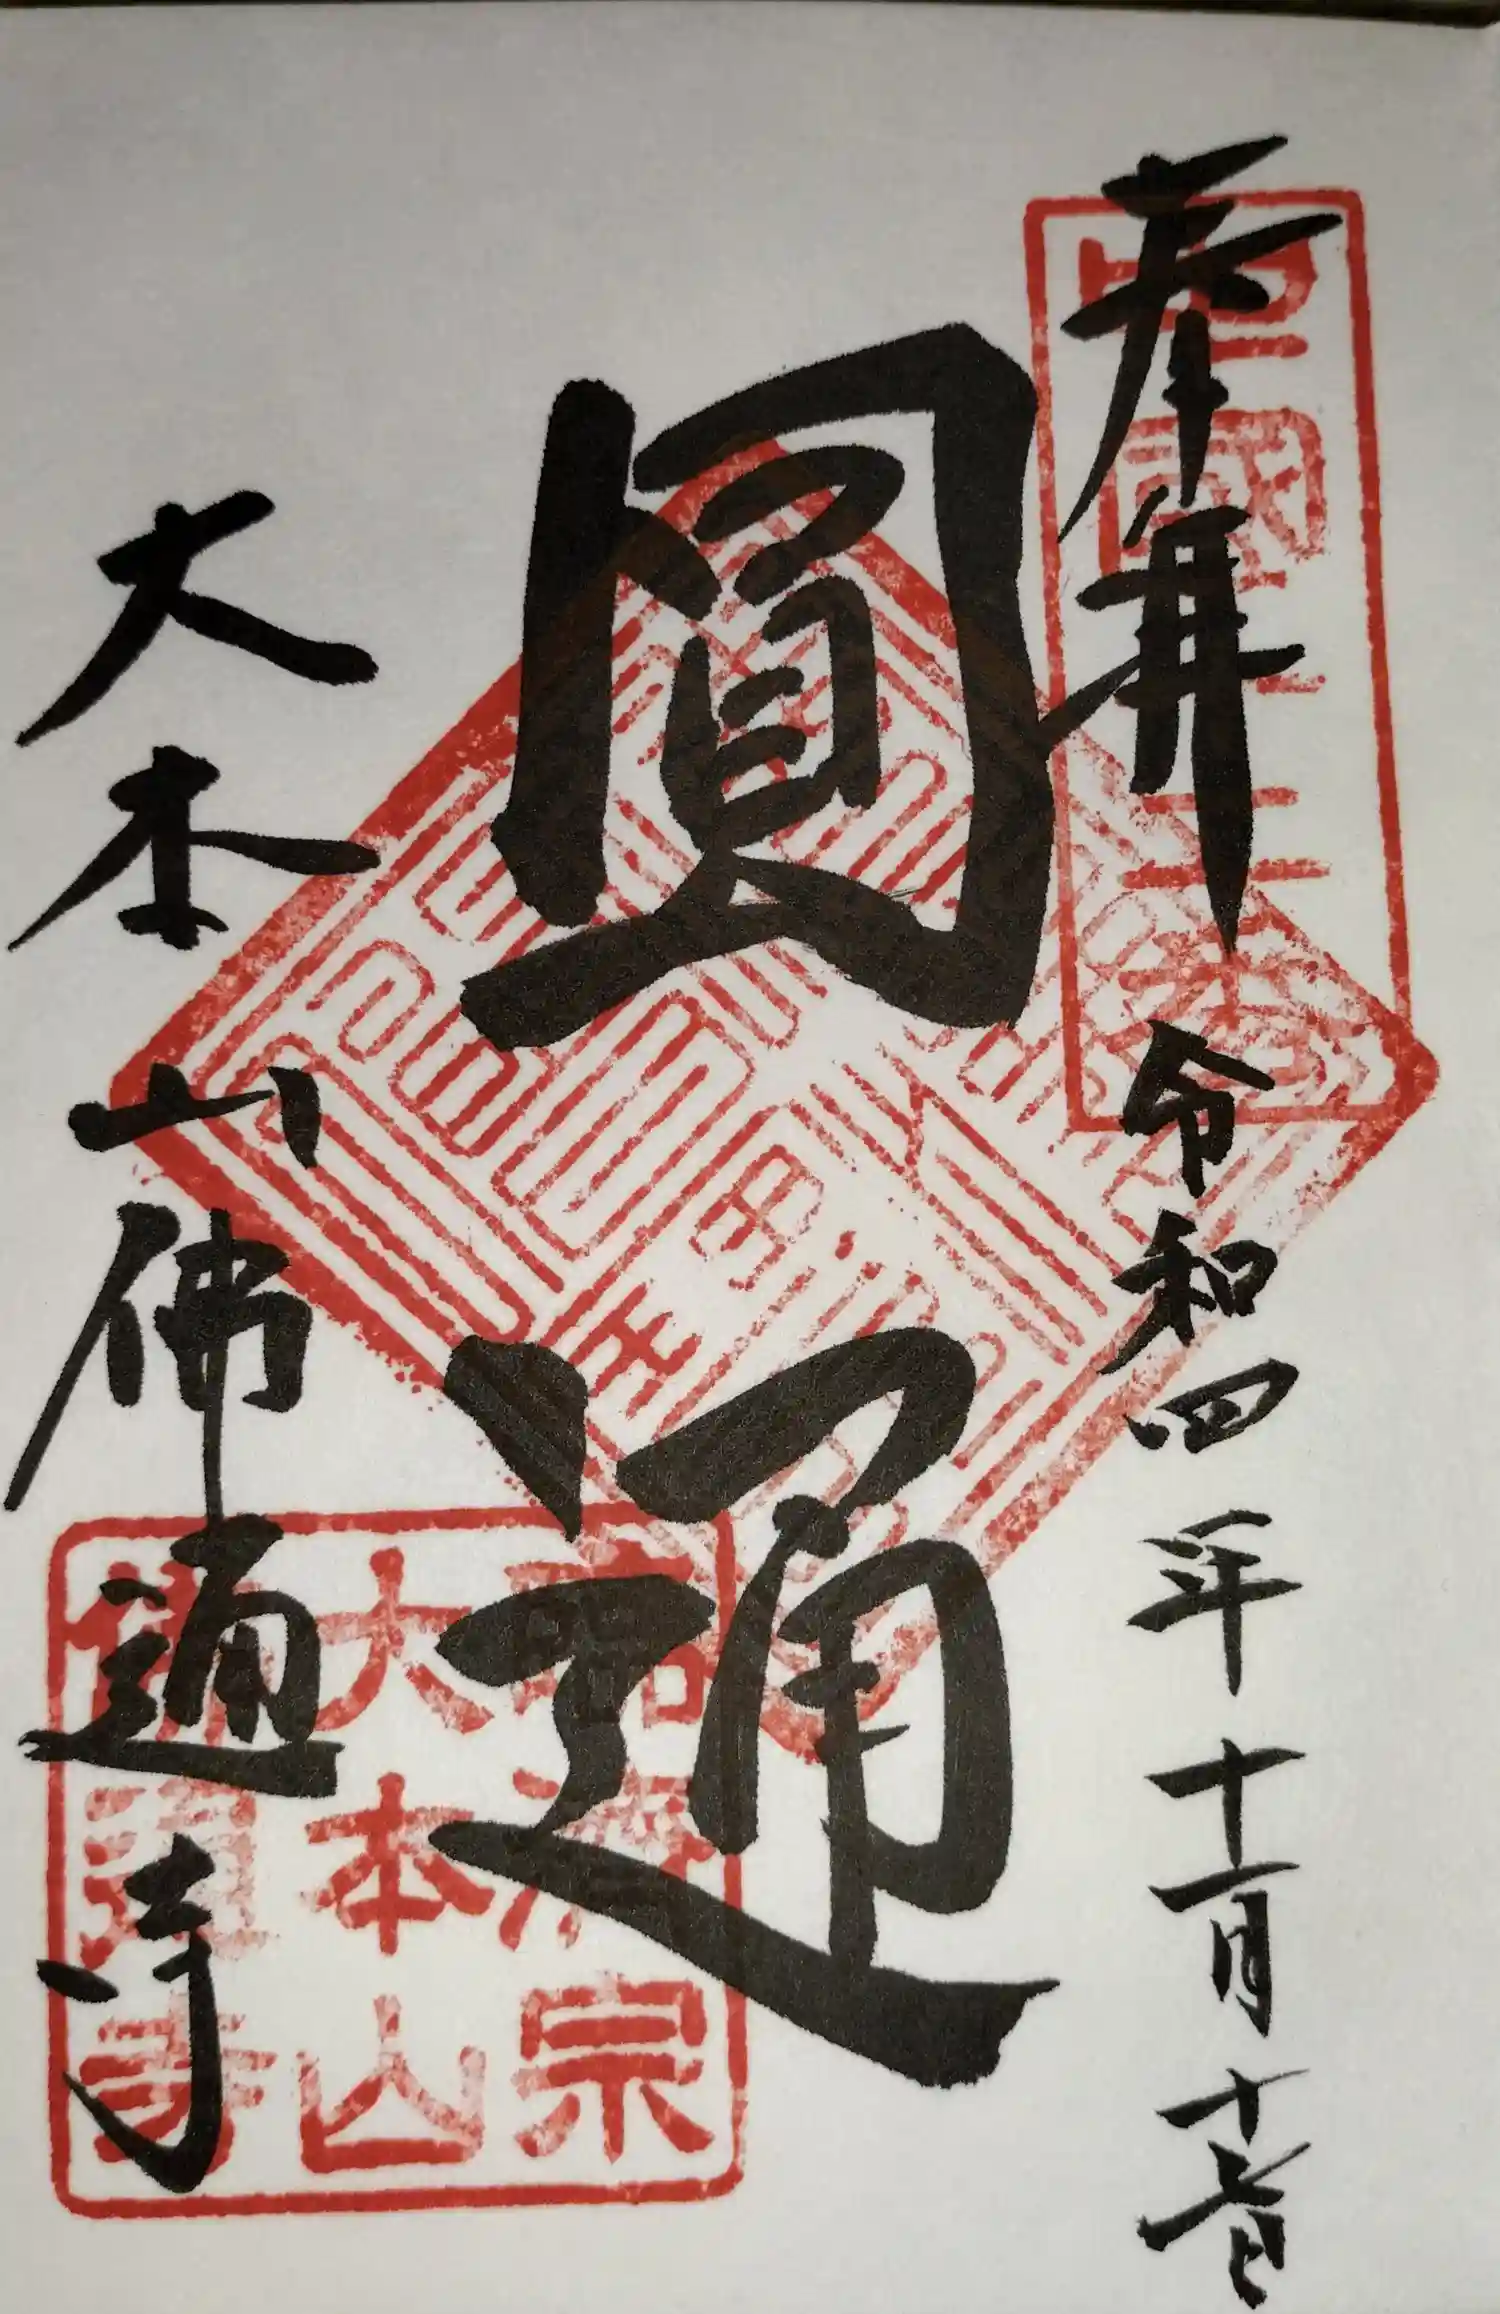 奉拝 令和四年十一月十七日
圓通
大本山佛通寺
臨済宗
大本山
佛通寺